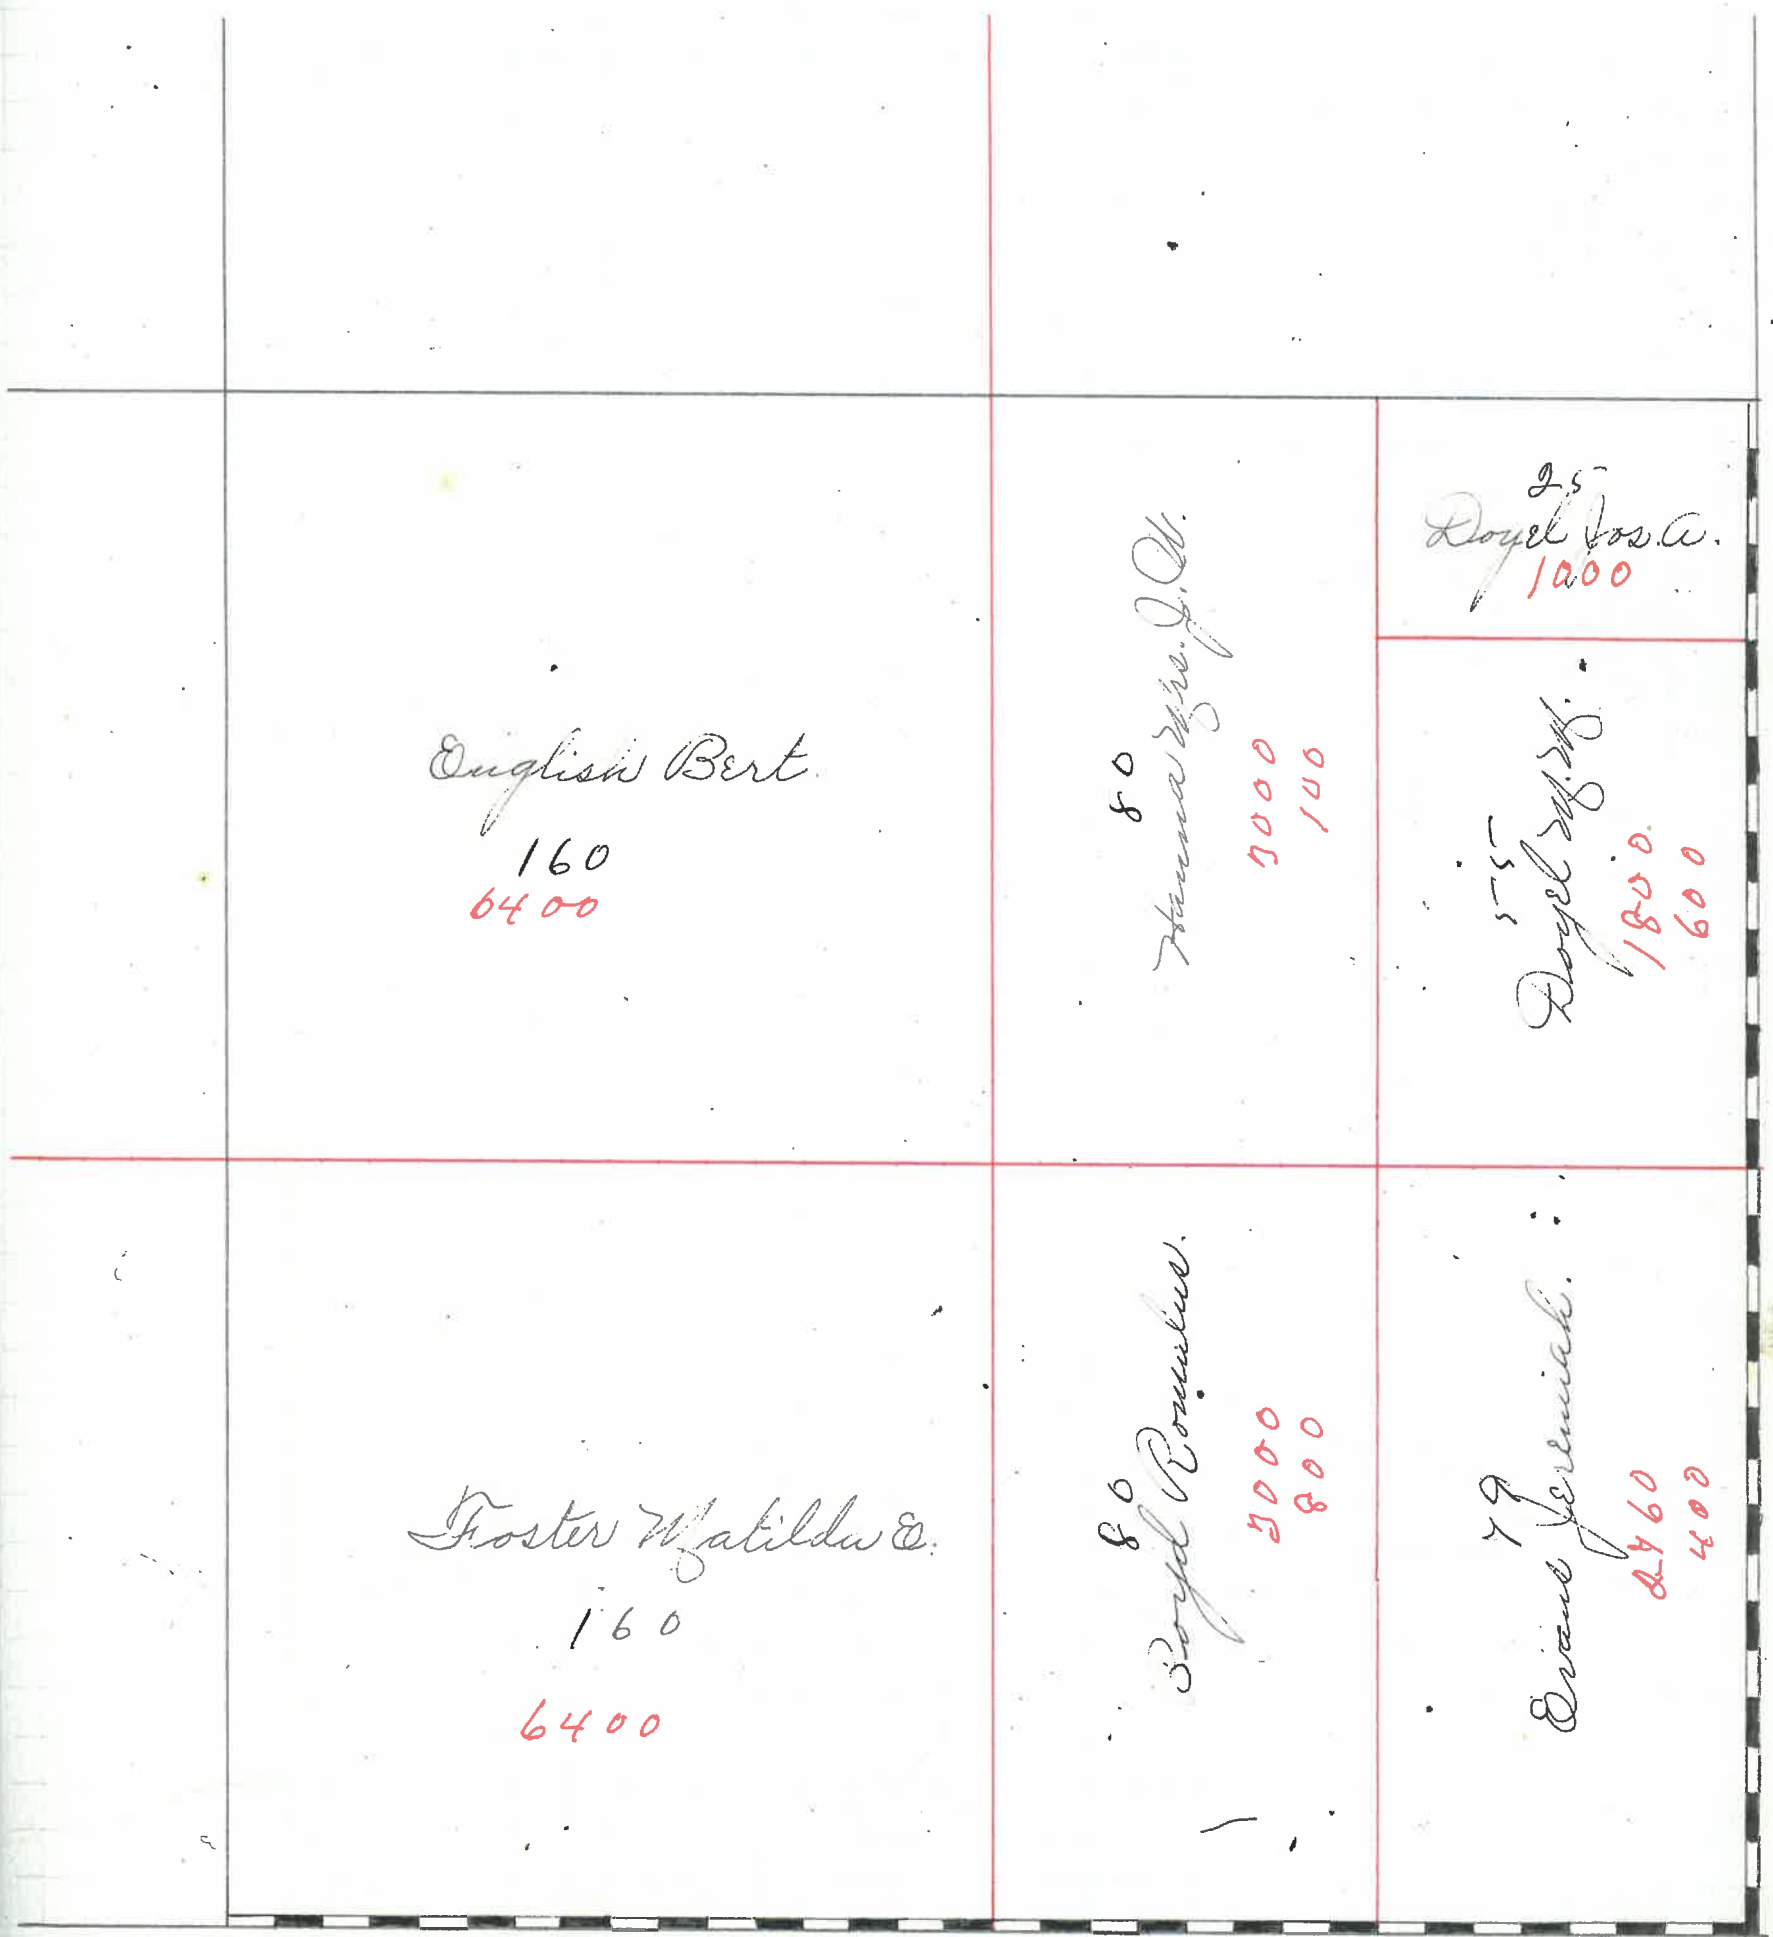 English Bert.
160
6400
80
Hanna Mrs. J. W.
3000
100
25
Doyel Jos. A.
1000
55
Doyel M. M.
1800
600
Foster Matilda E.
160
6400
80
Boyd Romulus.
3000
800
79
Evans Jeremiah.
2760
400